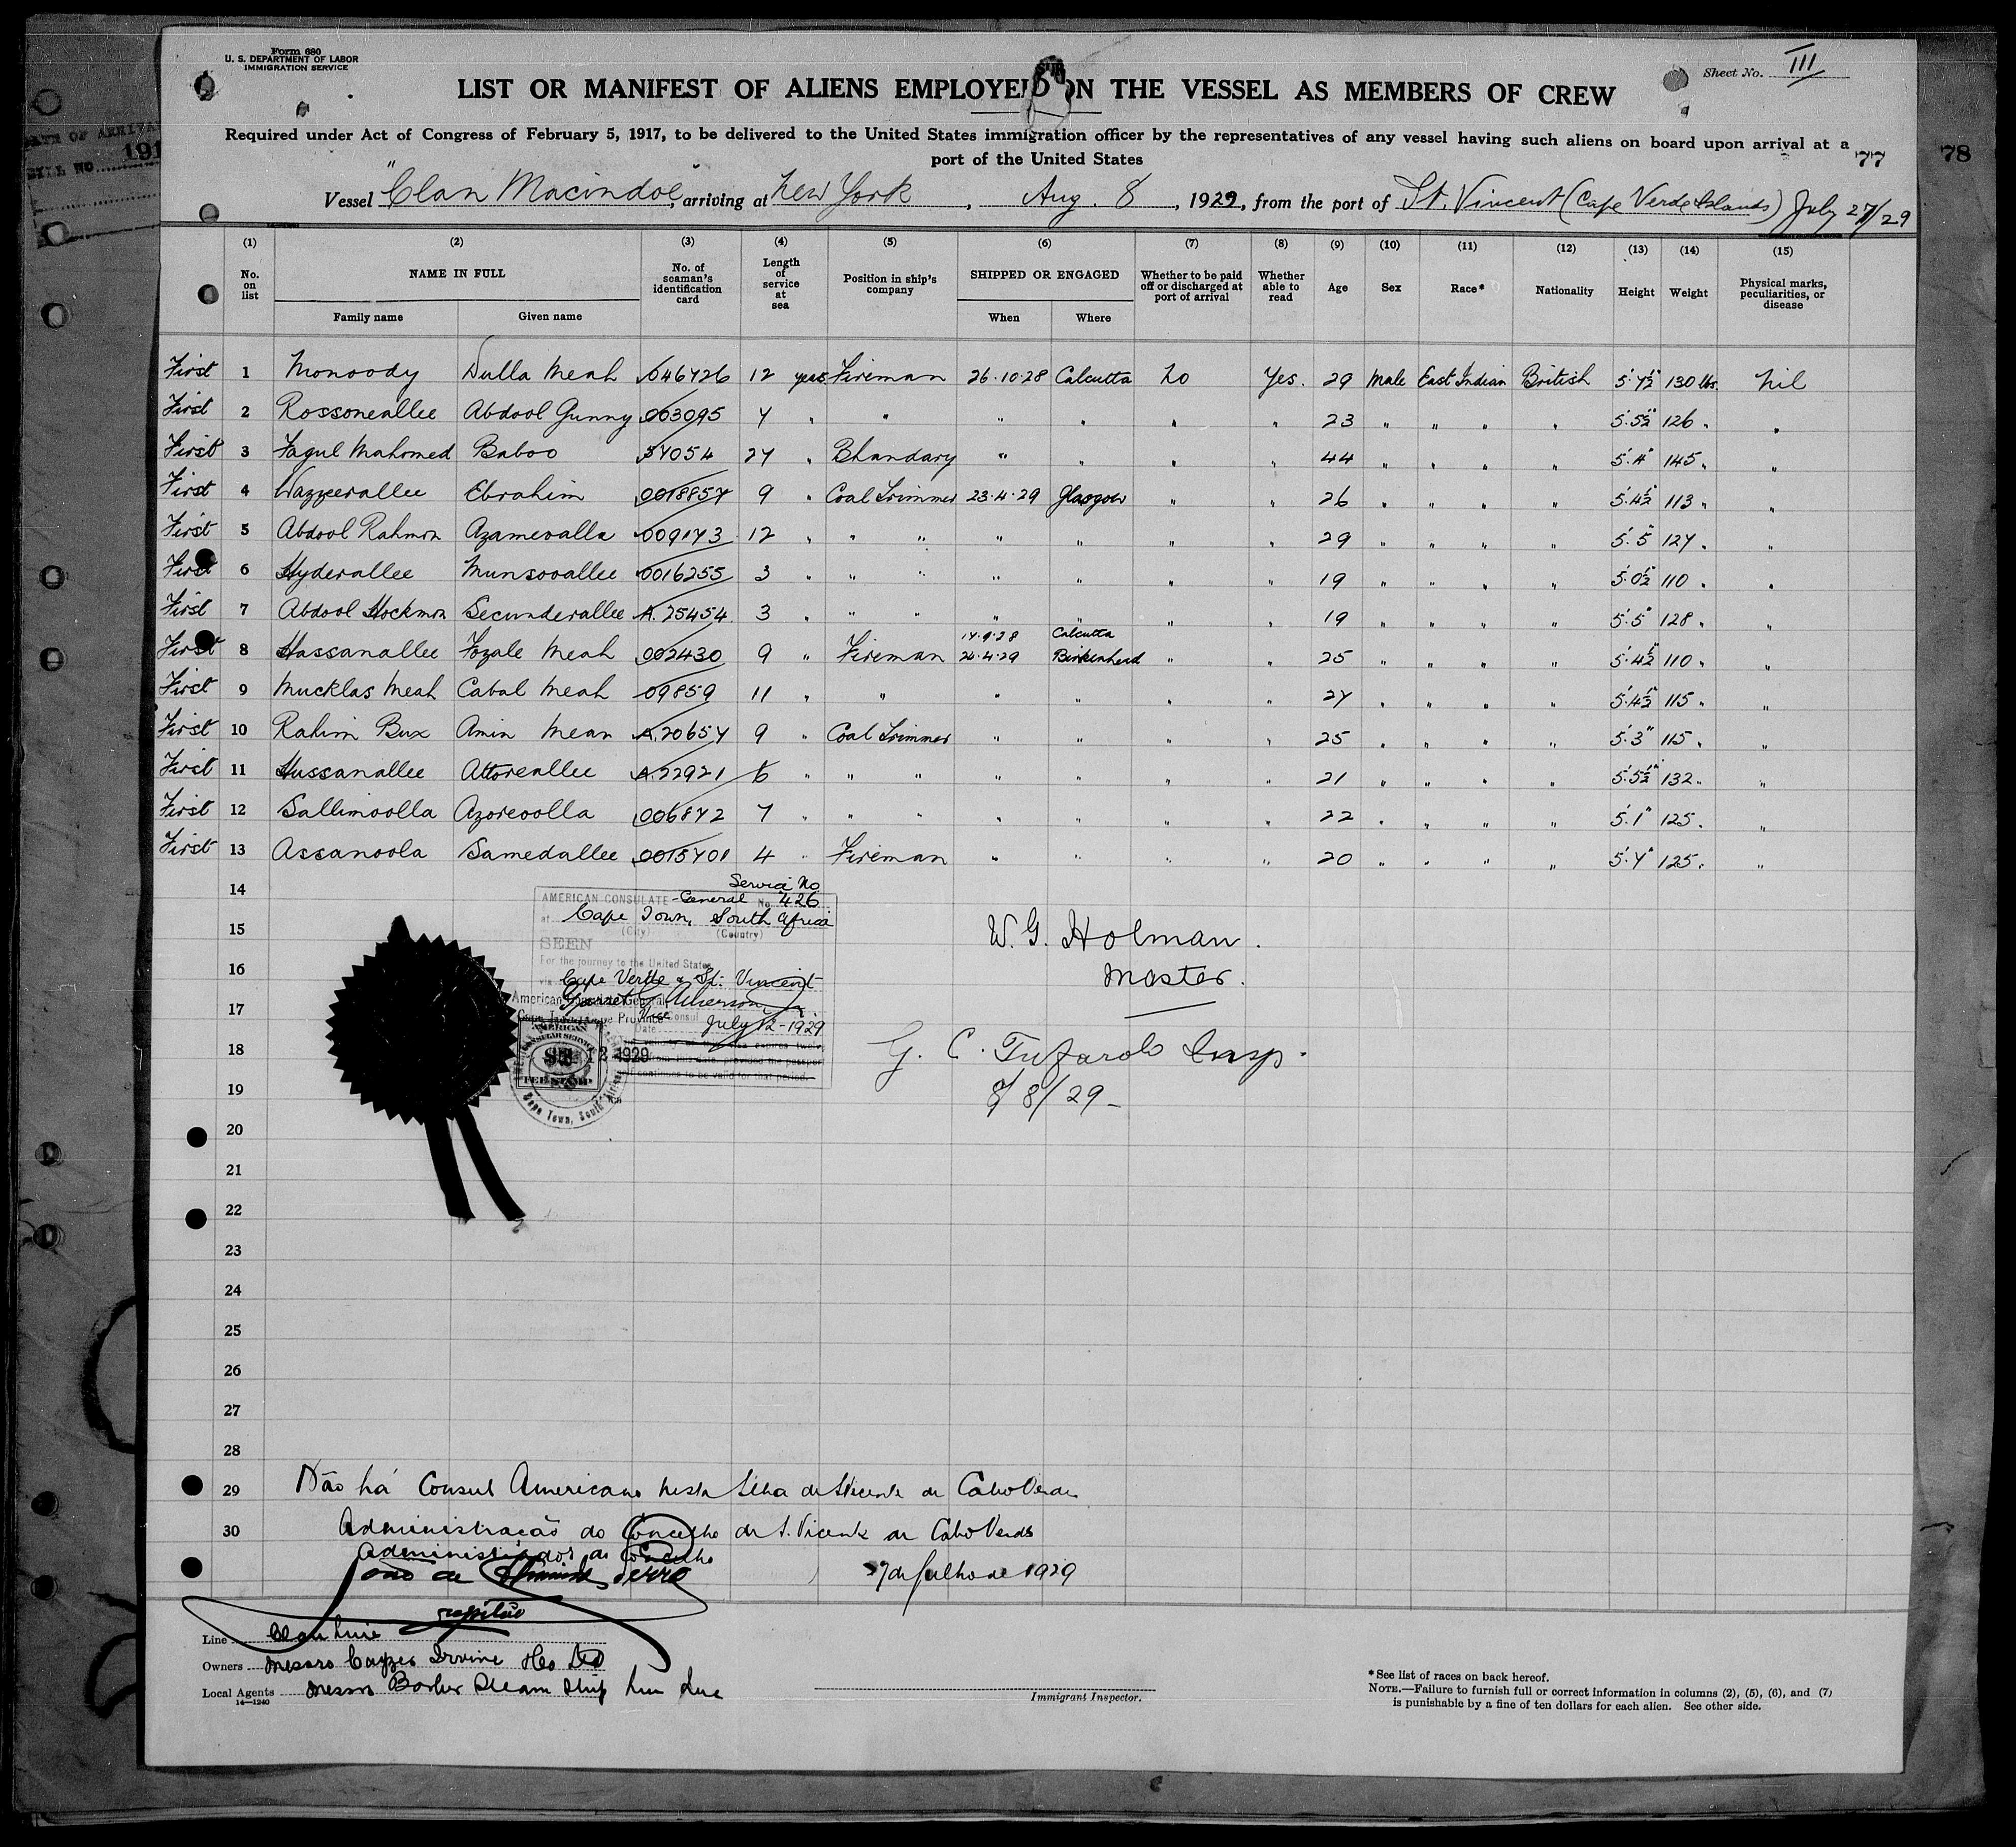 Form 680
U. S. DEPARTMENT OF LABOR
IMMIGRATION SERVICE
Sheet No. III
LIST OR MANIFEST OF ALIENS EMPLOYED ON THE VESSEL AS MEMBERS OF CREW
Required under Act of Congress of February 5, 1917, to be delivered to the United States immigration officer by the representatives of any vessel having such aliens on board upon arrival at a
port of the United States
77 78
Vessel "Clan Macindoe", arriving at New York, Aug. 8, 1929, from the port of St. Vincent (Cape Verde Islands) July 27/29
(1) (2) (3) (4) (5) (6) (7) (8) (9) (10) (11) (12) (13) (14) (15)
No. on list NAME IN FULL Family name Given name No. of seaman's identification card Length of service at sea Position in ship's company SHIPPED OR ENGAGED When Where Whether to be paid off or discharged at port of arrival Whether able to read Age Sex Race* Nationality Height Weight Physical marks, peculiarities, or disease
First 1 Monoody Dulla Meah 046726 12 years Fireman 26.10.28 Calcutta No Yes. 29 Male East Indian British 5'.7½" 130 lbs. Nil
First 2 Rossoneallee Abdool Gunny 003095 7 " " " " " " 23 " " " " 5'.5½" 126 " "
First 3 Fagul Mahomed Baboo 57054 27 " Bhandary " " " " 44 " " " " 5'.4" 145 " "
First 4 Wazzeerallee Ebrahim 0018857 9 " Coal Trimmer 23.4.29 Glasgow " " 26 " " " " 5'.4½" 113 " "
First 5 Abdool Rahmon Azamevalla 009173 12 " " " " " " " 29 " " " " 5'.5" 127 " "
First 6 Hyderallee Munsovallee 0016255 3 " " " " " " " 19 " " " " 5'.0½" 110 " "
First 7 Abdool Hockmon Secunderallee A.25454 3 " " " " " " " 19 " " " " 5'.5" 128 " "
17.9.28 Calcutta
First 8 Hassanallee Fozale Meah 002430 9 " Fireman 24.4.29 Birkenhead " " 25 " " " " 5'.4½" 110 " "
First 9 Mucklas Meah Cabal Meah 09859 11 " " " " " " 27 " " " " 5'.4½" 115 " "
First 10 Rahim Bux Amin Mean A.20657 9 " Coal Trimmer " " " " 25 " " " " 5'.3" 115 " "
First 11 Hussanallee Attoreallee A.22921 6 " " " " " " " 21 " " " " 5'.5½" 132 " "
First 12 Sallimoolla Azorevolla 006872 7 " " " " " " " 22 " " " " 5'.1" 125 " "
First 13 Assanoola Samedallee 0015701 4 " Fireman " " " " 20 " " " " 5'.7" 125 " "
14
Service No.
AMERICAN CONSULATE-General No. 426
at Cape Town, South Africa
(City) (Country)
15
SEEN
For the journey to the United States
via Cape Verde & St. Vincent
16
American Consulate General
17
Vice Consul
Date July 12-1929
AMERICAN CONSULAR SERVICE
FEE STAMP
12 1929
Cape Town, South Africa
W. G. Holman.
Master.
18
G. C. Tufarolo Insp.
19
8/8/29
20
21
22
23
24
25
26
27
28
29 Não há Consul Americano nesta Ilha de S. Vicente de Cabo Verde
30 Administração do Concelho de S. Vicente de Cabo Verde
Administrador do Concelho
27 de Julho de 1929
capitão
Line Clan Line
Owners Messrs Cayzer Irvine & Co Ltd
Local Agents Messrs Barber Steam Ship Line Inc
14—1240
Immigrant Inspector.
* See list of races on back hereof.
NOTE.—Failure to furnish full or correct information in columns (2), (5), (6), and (7)
is punishable by a fine of ten dollars for each alien. See other side.